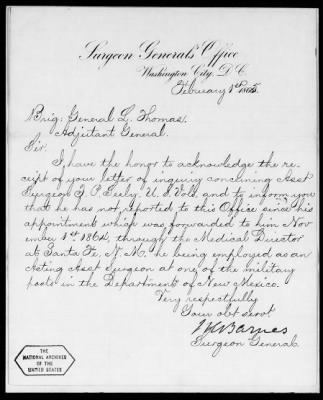 Surgeon General's Office
Washington City, D.C.
February 1st 1865.
Brig: General L. Thomas,
Adjutant General.
Sir.
I have the honor to acknowledge the re-
ceipt of your letter of inquiry concerning Asst
Surgeon J. P. Seely, U.S. Vols. and to inform you
that he has not reported to this Office since his
appointment which was forwarded to him Nov
ember 1st 1864, through the Medical Director
at Santa Fe, N.M. he being employed as an
Acting Asst Surgeon at one of the military
posts in the Department of New Mexico.
Very respectfully
Your obt servt
Barnes
Surgeon General.
THE
NATIONAL ARCHIVES
OF THE
UNITED STATES